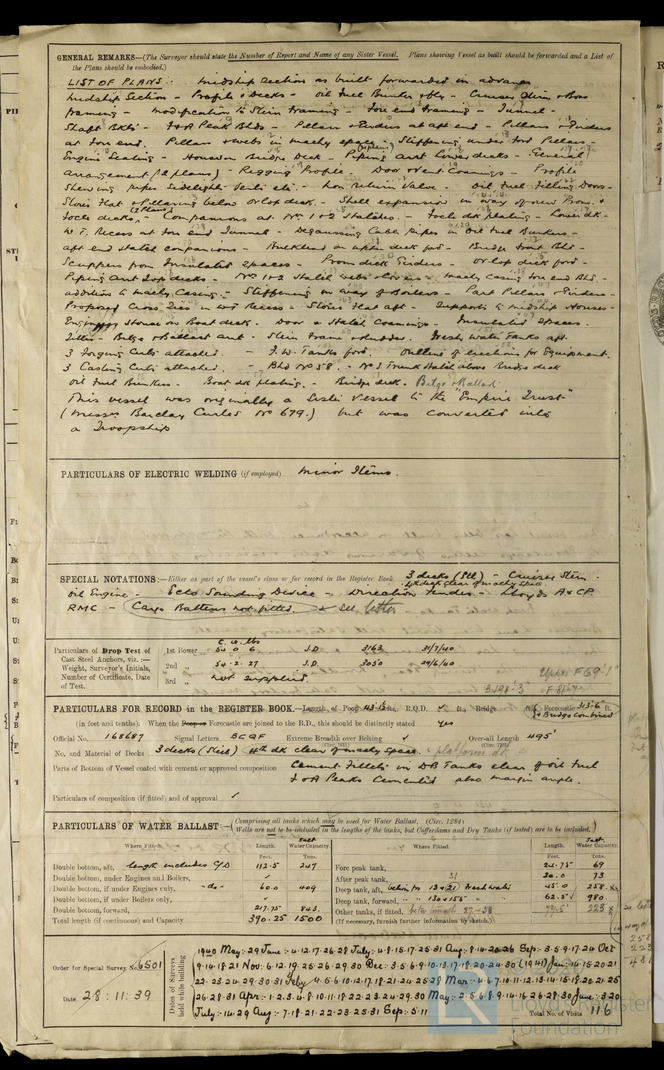 GENERAL REMARKS—(The Surveyor should state the Number of Report and Name of any Sister Vessel. Plans showing Vessel as built should be forwarded and a List of
the Plans should be embodied.)
LIST OF PLANS: Midship Section as built forwarded in advance
Midship Section - Profile & Decks - Oil Fuel Bunker - Cruiser Stern & Bow
Framing - Modification to Stern Framing - Fore end Framing - Tunnel -
Shaft Bkts - F & A Peak Blds - Pillars & Girders at aft end - Pillars & Girders
at fore end. Pillars & webs in machy space. Stiffening under Pillars -
Engine Seating - House on Bridge Deck - Piping and Lower decks - General
Arrangement (2 plans) - Rigging Profile - Door & Vent Coamings - Profile
Shewing pipes Sidelights Vents etc - Non Return Valve - Oil Fuel Filling Doors -
Stores Flat & Pillaring below Orlop deck - Shell expansion in way of new Prom. &
Focle decks, (2 Plans) - Companions at No 1 & 2 Hatches - Focle dk plating - Lower dk -
W.T. Recess at fore end Tunnel - Degaussing Cable Pipes in Oil Fuel Bunkers -
aft end Hatch companions - Bulkhead on upper deck ford - Bridge front Bld -
Scuppers from Insulated spaces - Prom deck Girders - Orlop deck ford -
Piping decks - No 1 & 2 Hatch webs & Covers - Machy Casing fore end Bld -
addition to machy Casing - Stiffening in way of Boilers - Part Pillars & Girders -
Proposed Cross Ties in W.T. Recess - Stores Flat aft - Supports to Midship Houses -
House on Boat deck. Door & Hatch Coamings - Insulated Spaces.
Bilge & Ballast - Stern Frame & Rudder. Fresh Water Tanks aft.
3 Forging Certs attached. - F.W. Tanks ford. Outline of erections for Equipment.
3 Casting Certs attached. - Bhd No 58. - No 3 Trunk Hatch above Bridge deck
Oil Fuel Bunkers - Boat dk plating. - Bridge deck. Bilge & Ballast
This vessel was originally a Sister Vessel to the "Empire Trust"
(Messrs Barclay Curles No 679.) but was converted into
a Troopship
PARTICULARS OF ELECTRIC WELDING (if employed) Minor Items.
SPECIAL NOTATIONS:—Either as part of the vessel's class or for record in the Register Book 3 decks (Stl) - Cruiser Stern.
4th deck clear of machy space
Oil Engine - Echo Sounding Device - Direction Finder - Lloyds A & CP.
RMC - Cargo Battens not fitted - See letter
Particulars of Drop Test of
Cast Steel Anchors, viz.:—
Weight, Surveyor's Initials,
Number of Certificate, Date
of Test.
C. Q. lbs
1st Bower 54 0 6 J.D. 3163 31/7/40
2nd „ 54 - 2 - 27 J.D. 3050 29/6/40
3rd „ not supplied
PARTICULARS FOR RECORD in the REGISTER BOOK.—Length of Poop 43·15 ft., R.Q.D. ✓ ft., Bridge ft., Forecastle 313·6 ft.
& Bridge combined
(in feet and tenths). When the Poop or Forecastle are joined to the B.D., this should be distinctly stated yes
Official No. 168687 Signal Letters BCGF Extreme Breadth over Belting ✓ Over-all Length 495'
No. and Material of Decks 3 decks (Steel) 4th dk clear of machy space.
Parts of Bottom of Vessel coated with cement or approved composition Cement Fillets in DB Tanks clear of oil fuel
F & A Peaks Cemented also margin angle.
Particulars of composition (if fitted) and of approval ✓
PARTICULARS OF WATER BALLAST:—(Comprising all tanks which may be used for Water Ballast. (Circ. 1284).
Wells are not to be included in the lengths of the tanks, but Cofferdams and Dry Tanks (if tested) are to be included.)
Where Fitted. Length. Water Capacity.
Feet. Tons.
Double bottom, aft, length includes C/D 112·5 247
Double bottom, under Engines and Boilers, ✓
Double bottom, if under Engines only, -do- 60·0 409
Double bottom, if under Boilers only,
Double bottom, forward, 217·75 843
Total length (if continuous) and Capacity 390·25 1500
Where Fitted. Length. Water Capacity.
Feet. Tons.
Fore peak tank, 24·75 69
After peak tank, 20·0 73
Deep tank, aft, 13 & 21 Fresh water 15·0 258
Deep tank, forward, 134 & 155 62·5 980
Other tanks, if fitted, 27 - 38 223
(If necessary, furnish further information by sketch.)
Order for Special Survey No. 6501
Date 28 : 11 : 39
Dates of Surveys held while building
1940 May: 29 June: 4·12·17·26·28 July: 4·8·15·17·25·31 Aug: 8·14·20·26 Sep: 3·5·9·17·24 Oct
9·14·18·21 Nov: 6·12·19·25·26·29·30 Dec: 3·5·6·9·10·13·17·18·20·24·30 (1941) Jan: 14·15·20·21
22·23·24·29·30·31 Feby 4·5·6·10·12·17·18·21·24·25·28 Mar: 4·6·7·10·11·12·13·14·15·18·20·21·25
26·28·31 Apr: 1·2·3·4·8·10·11·18·22·23·24·29·30 May: 2·5·6·8·9·14·16·26·28·30 June: 3·20
July: 14·29 Aug: 7·18·21·22·23·25·31 Sep: 5·11
Total No. of Visits 116
Lloyd's Register
Foundation